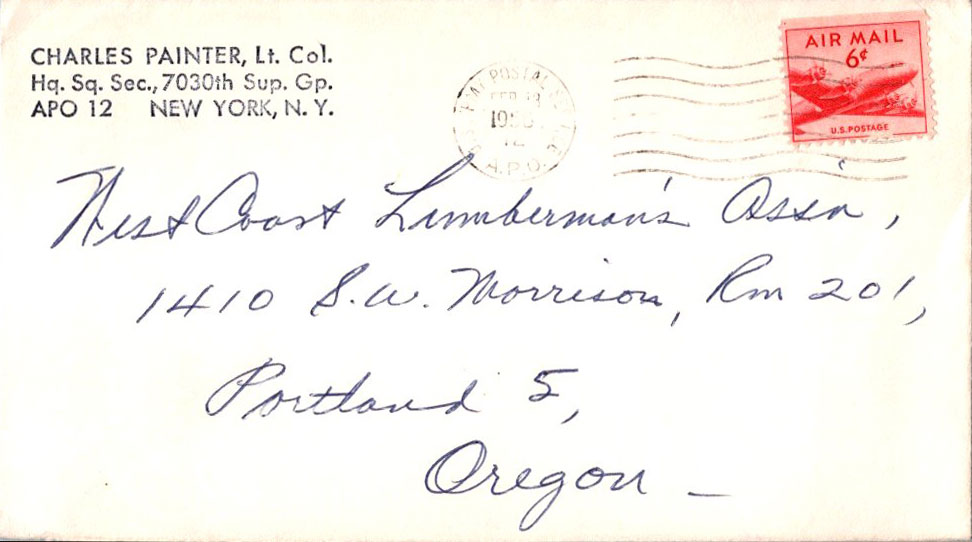 CHARLES PAINTER, Lt. Col.
Hq. Sq. Sec., 7030th Sup. Gp.
APO 12 NEW YORK, N. Y.
POSTAL
A.P.O.
AIR MAIL
6¢
U.S. POSTAGE
West Coast Lumberman's Assn,
1410 S.W. Morrison, Rm 201,
Portland 5,
Oregon —